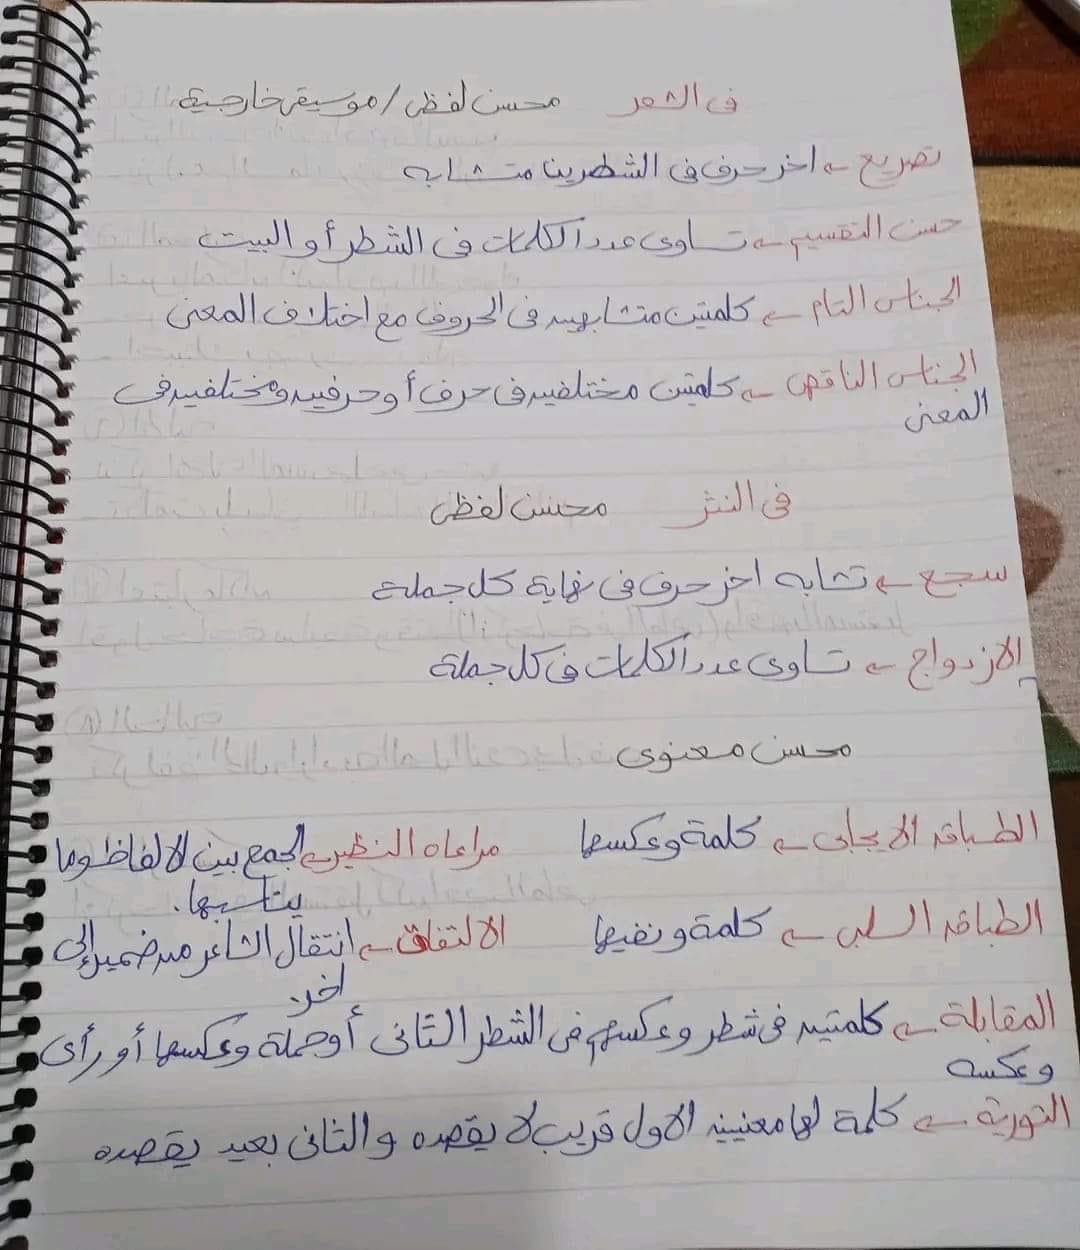 فى الشعر محسن لفظى / موسيقى خارجية
تصريع ← اخر حرف فى الشطرين متشابه
حسن التقسيم ← تساوى عدد الكلمات فى الشطر أو البيت
الجناس التام ← كلمتين متشابهين فى الحروف مع اختلاف المعنى
الجناس الناقص ← كلمتين مختلفين فى حرف أو حرفين ومختلفين فى
المعنى
فى النثر محسن لفظى
سجع ← تشابه اخر حرف فى نهاية كل جملة
الازدواج ← تساوى عدد الكلمات فى كل جملة
محسن معنوى
الطباق الايجابى ← كلمة وعكسها مراعاه النظير ← الجمع بين الالفاظ وما
يناسبها.
الطباق السلبى ← كلمة ونفيها الالتفاق ← انتقال الشاعر من ضمير إلى
اخر
المقابلة ← كلمتين فى شطر وعكسهم فى الشطر الثانى أو جملة وعكسها أو رأى
وعكسه
التورية ← كلمة لها معنيين الاول قريب لا يقصده والثانى بعيد يقصده